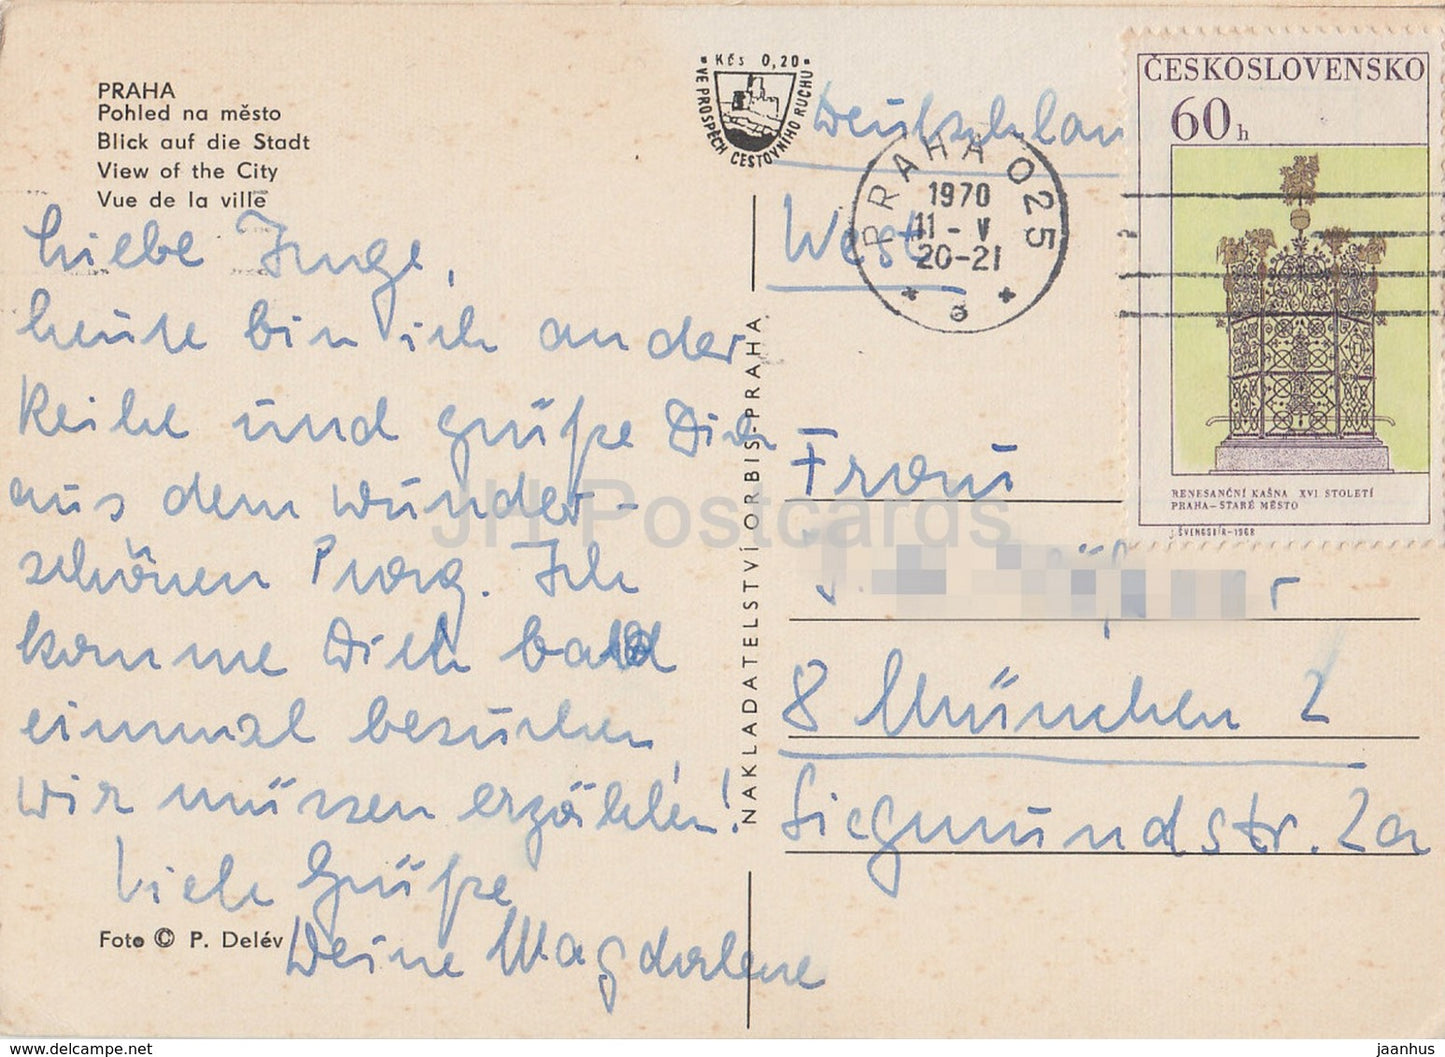 PRAHA
Pohled na město
Blick auf die Stadt
View of the City
Vue de la ville
Liebe Inge,
heute bin ich an der
Reihe und grüße Dich
aus dem wunder-
schönen Prag. Ich
komme Dich bald
einmal besuchen,
wir müssen erzählen!
Viele Grüße
Deine Magdalene
Foto © P. Delév
NAKLADATELSTVÍ ORBIS-PRAHA
Kčs 0,20
VE PROSPĚCH CESTOVNÍHO RUCHU
Deutschlan
West
PRAHA 025
1970
11-V
20-21
e
ČESKOSLOVENSKO
60 h
RENESANČNÍ KAŠNA XVI STOLETÍ
PRAHA-STARÉ MĚSTO
J. ŠVENGSBÍR-1968
Frau
8 München 2
Siegmundstr. 2a
JH Postcards
https://www.delcampe.net
jaanhus